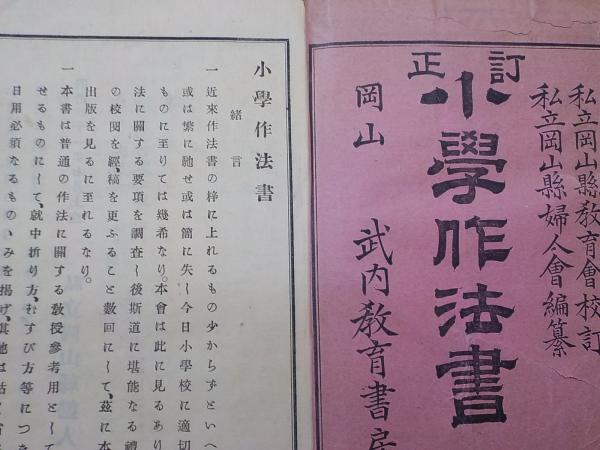 私立岡山縣敎育會校訂
私立岡山縣婦人會編纂
訂正
小學作法書
岡山
武内敎育書房
小學作法書
緒言
一 近來作法書の梓に上れるもの少からずといへ
或は繁に馳せ或は簡に失し今日小學校に適切
ものに至りては幾希なり。本會は此に見るあり
法に關する要項を調査し後斯道に堪能なる禮
の校閲を經、稿を更ふること數回にして、茲に本
出版を見るに至れるなり。
一 本書は普通の作法に關する敎授參考用として
せるものにして、就中折り方、むすび方等につき
日用必須なるもののみを揭げ、其他は